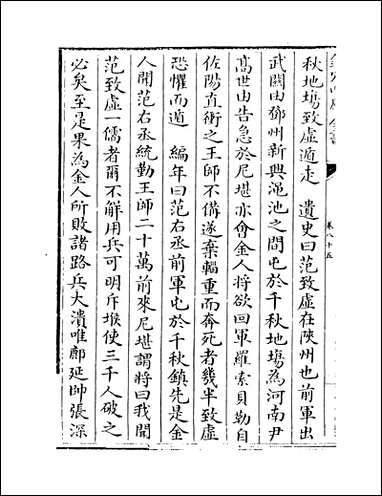 卷八十五
秋地塲致虛遁走　遺史曰范致虛在陜州也前軍出
武闗由鄧州新興澠池之間屯於千秋地塲為河南尹
髙世由告急於尼堪亦會金人將欲回軍羅索貝勒自
佐陽直衝之王師不備遂棄輜重而奔死者幾半致虛
恐懼而遁　編年曰范右丞前軍屯於千秋鎮先是金
人聞范右丞統勤王師二十萬前來尼堪謂將曰我聞
范致虛一儒者爾不觧用兵可明斥堠使三千人破之
必矣至是果為金人所敗諸路兵大潰唯鄜延帥張深